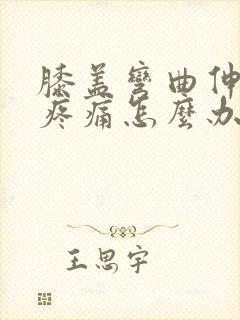 膝盖彎曲伸
疼痛怎麼办
王思宇